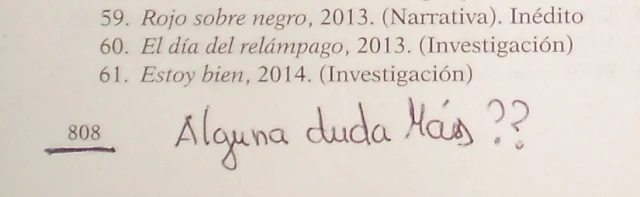 59. Rojo sobre negro, 2013. (Narrativa). Inédito
60. El día del relámpago, 2013. (Investigación)
61. Estoy bien, 2014. (Investigación)
808 Alguna duda Más ??